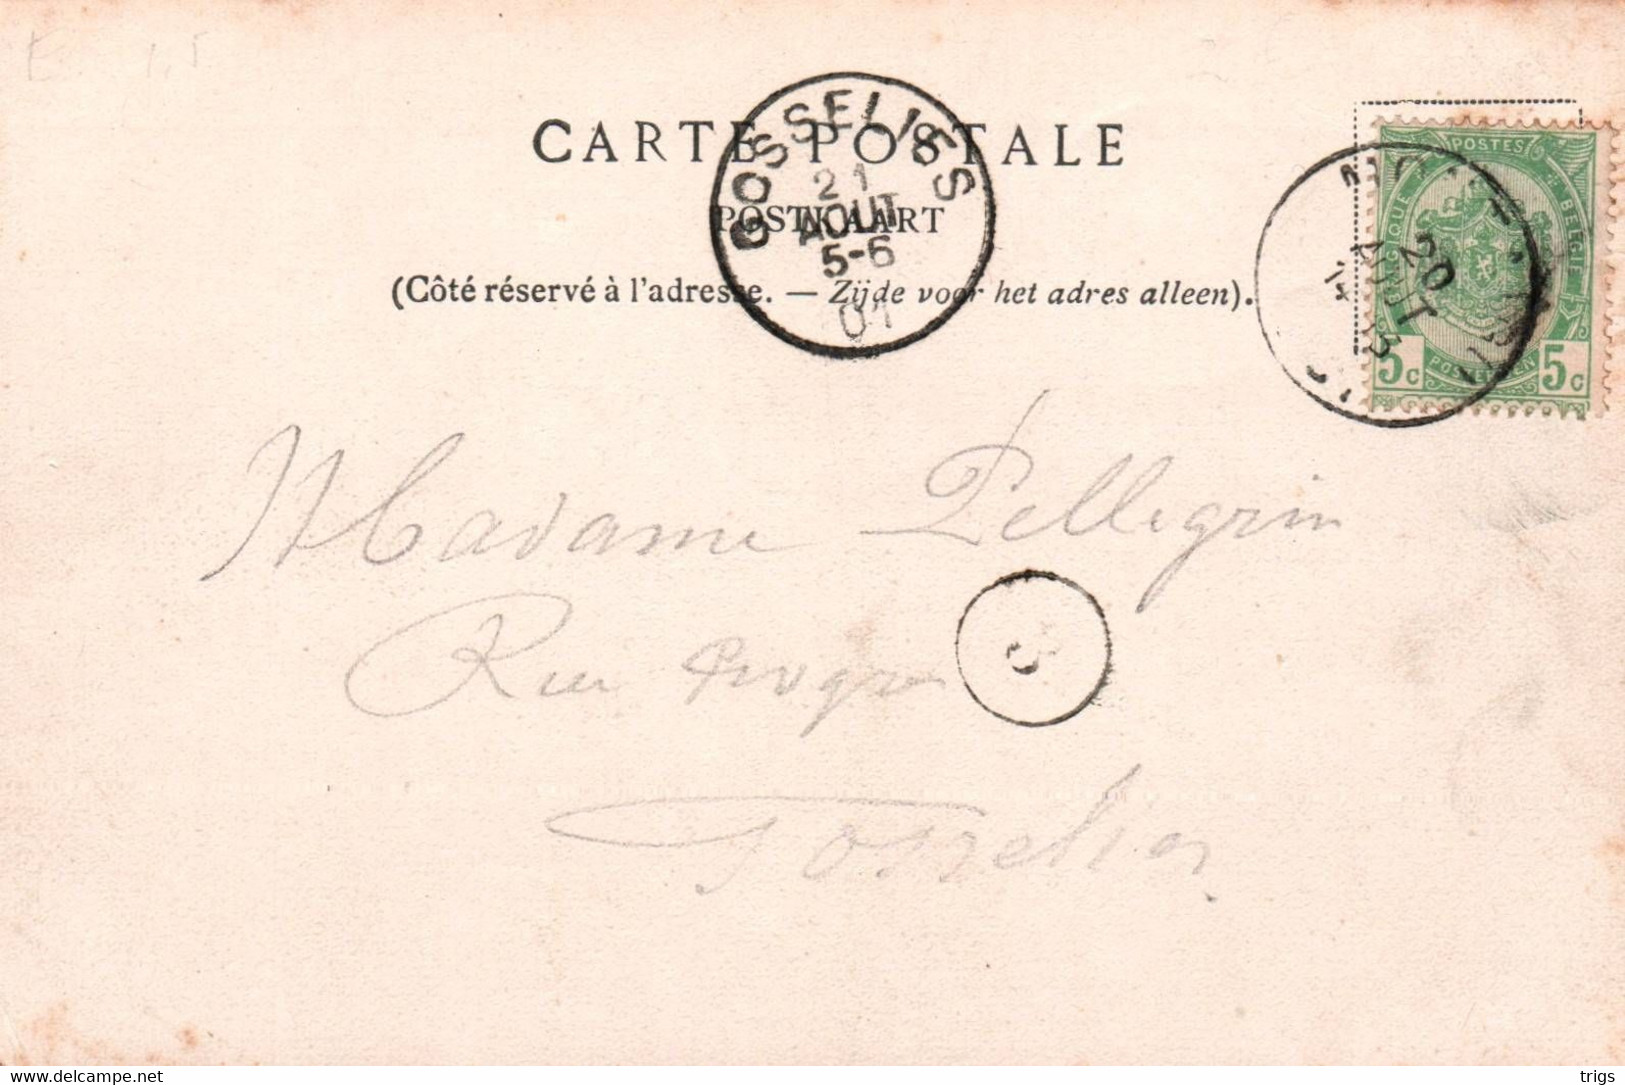 E 1,5
CARTE POSTALE
POSTKAART
(Côté réservé à l'adresse. — Zijde voor het adres alleen).
GOSSELIES
21
AOUT
5-6
01
20
AOUT
POSTES
BELGIQUE
BELGIE
POSTERIJEN
5c 5c
Madame Pellegrin
Rue
Gosselies
www.delcampe.net
trigs